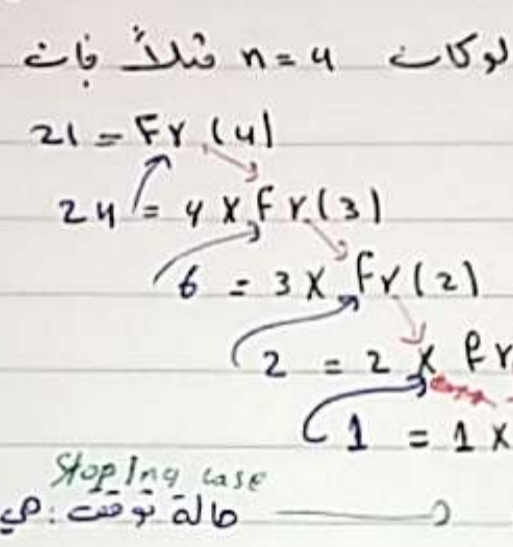 لوكان n = 4 مثلاً فان
21 = Fr (4)
24 = 4 X Fr(3)
6 = 3 X Fr(2)
2 = 2 X Fr
1 = 1 X
Stoping case
حالة توقف : هي